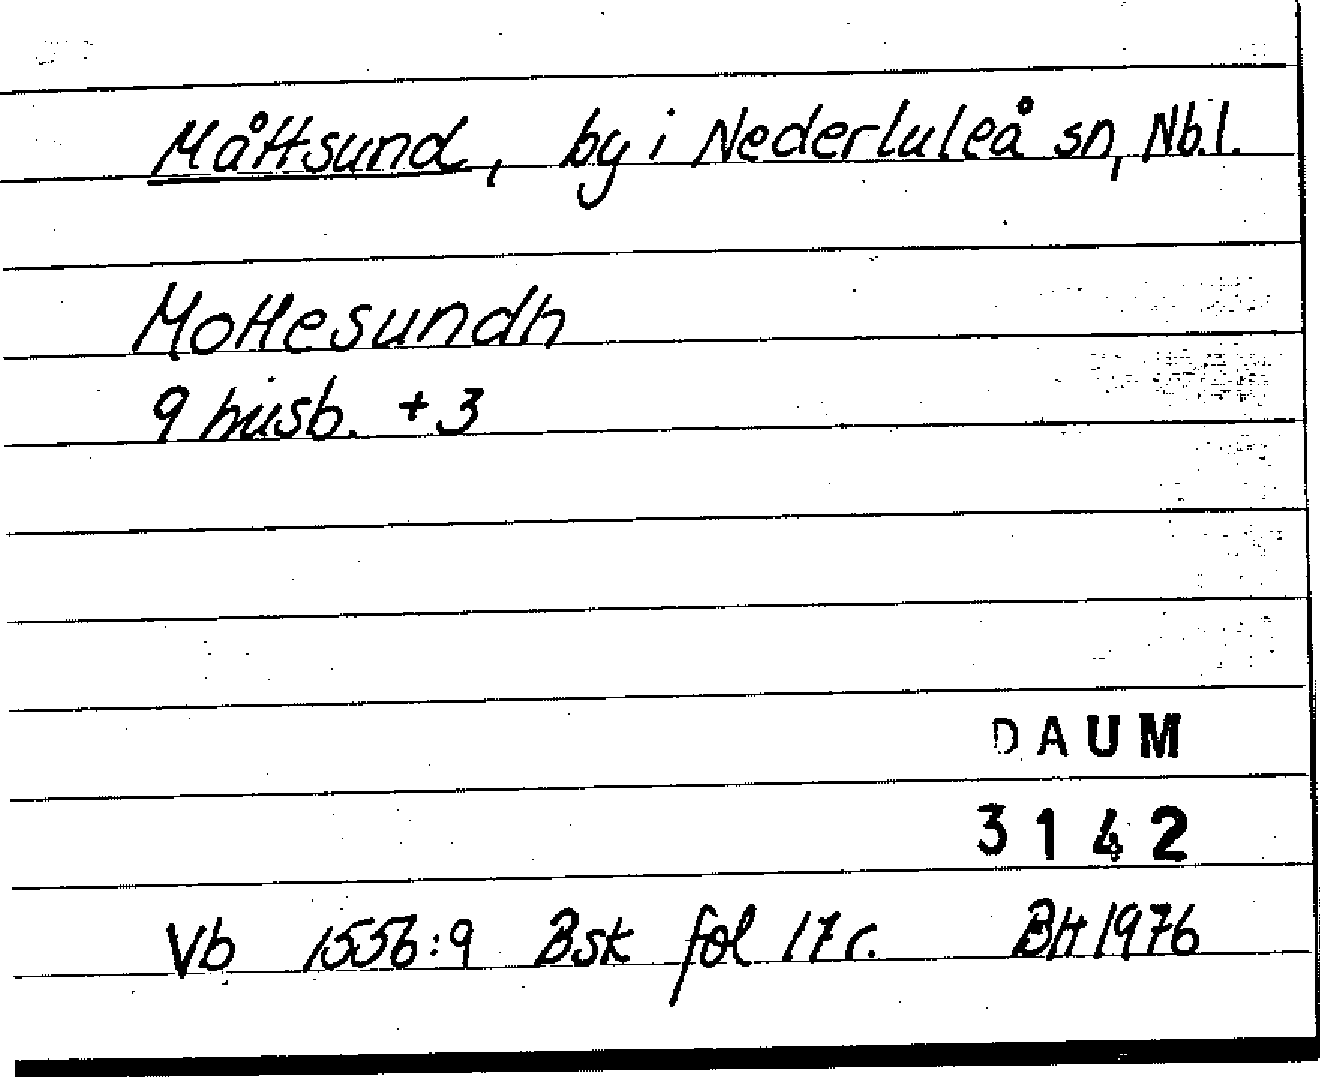 Måttsund, by i Nederluleå sn, Nb.l.
Mottesundh
9 husb. + 3
DAUM
3142
Vb 1556:9 Bsk fol 17 r. BH 1976